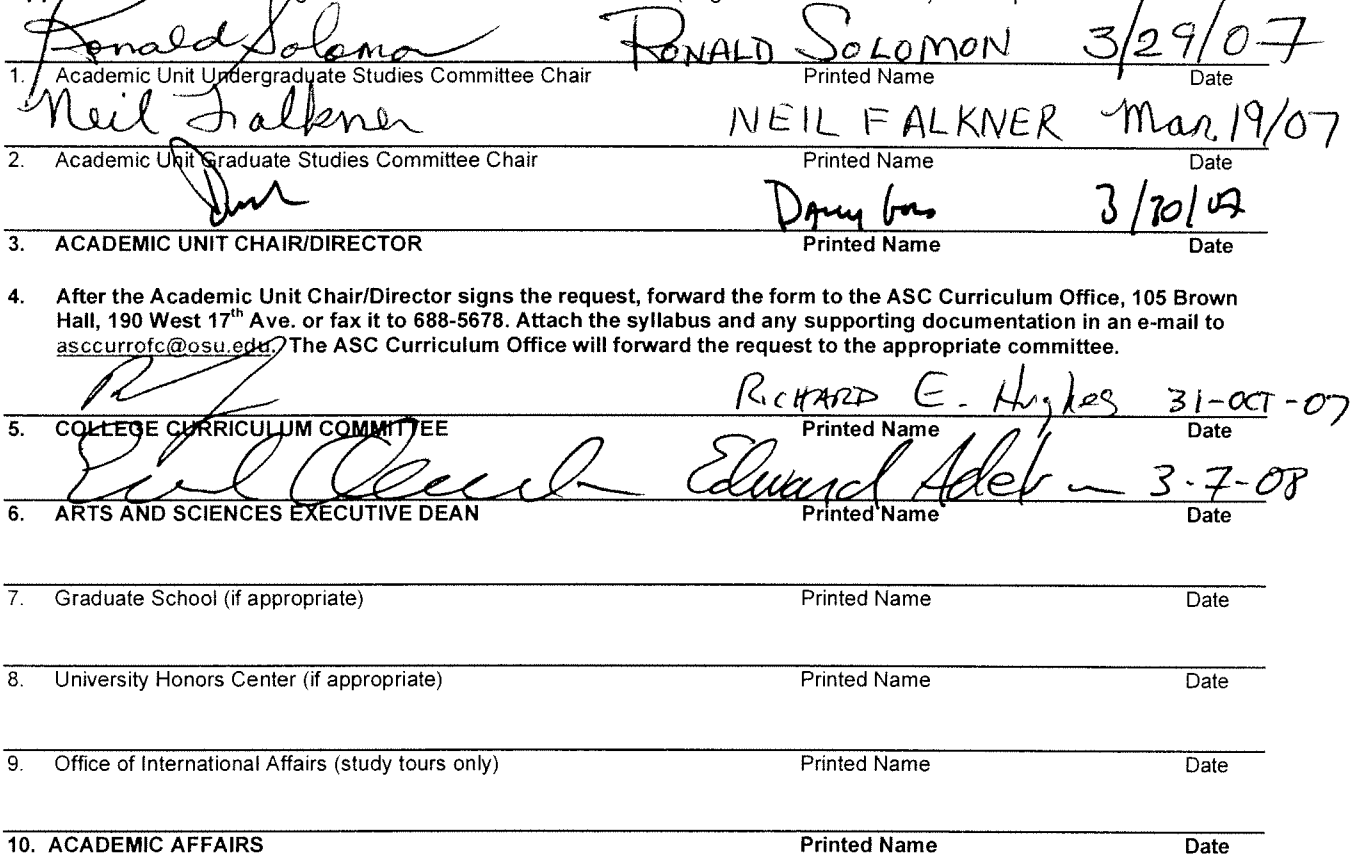 Ronald Solomon RONALD SOLOMON 3/29/07
1. Academic Unit Undergraduate Studies Committee Chair Printed Name Date
Neil Falkner NEIL FALKNER Mar 19/07
2. Academic Unit Graduate Studies Committee Chair Printed Name Date
3/30/07
3. ACADEMIC UNIT CHAIR/DIRECTOR Printed Name Date
4. After the Academic Unit Chair/Director signs the request, forward the form to the ASC Curriculum Office, 105 Brown
Hall, 190 West 17th Ave. or fax it to 688-5678. Attach the syllabus and any supporting documentation in an e-mail to
asccurrofc@osu.edu. The ASC Curriculum Office will forward the request to the appropriate committee.
RICHARD E. Hughes 31-OCT-07
5. COLLEGE CURRICULUM COMMITTEE Printed Name Date
Edward 3-7-08
6. ARTS AND SCIENCES EXECUTIVE DEAN Printed Name Date
7. Graduate School (if appropriate) Printed Name Date
8. University Honors Center (if appropriate) Printed Name Date
9. Office of International Affairs (study tours only) Printed Name Date
10. ACADEMIC AFFAIRS Printed Name Date